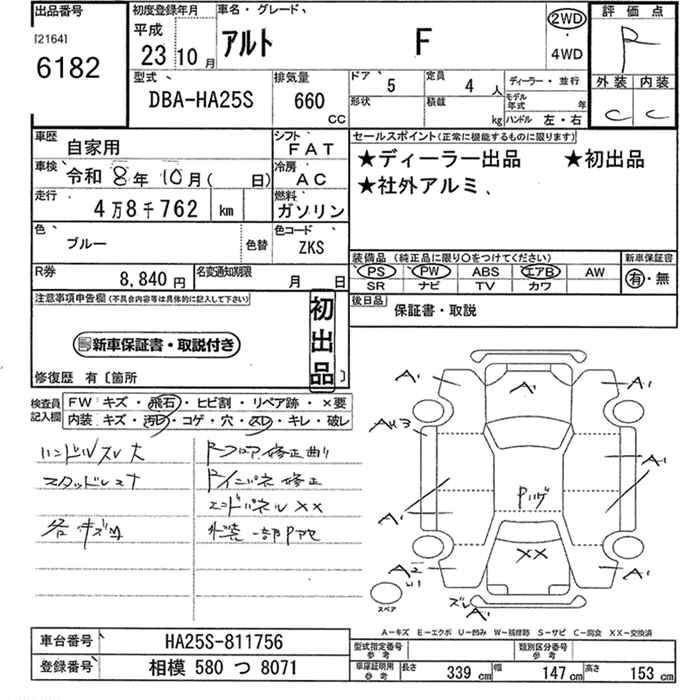 出品番号
[2164]
6182
初度登録年月
平成
23 10 月
車名・グレード、
アルト F
2WD
・
4WD
評価点
R
外装 内装
C C
型式
DBA-HA25S
排気量
660 CC
ドア 5
定員 4 人
形状
積載 kg
ディーラー・並行
モデル年式 年
ハンドル 左・右
車歴 自家用
シフト FAT
車検 令和 8年 10月( 日)
冷房 AC
走行 4万8千762 km
燃料 ガソリン
色 ブルー
色替
色コード ZKS
R券 8,840 円
名変通知期限 月 日
セールスポイント(正常に機能するものに限ります)
★ディーラー出品 ★初出品
★社外アルミ、
装備品(純正品に限り〇をつけてください)
新車保証書
PS PW ABS エアB AW
有・無
SR ナビ TV カワ
後日品 保証書・取説
注意事項申告欄(不具合内容等は具体的に記入して下さい)
新車保証書・取説付き
初出品
修復歴 有〔箇所 〕
検査員記入欄
FW キズ・飛石・ヒビ割・リペア跡・×要
内装 キズ・汚レ・コゲ・穴・スレ・キレ・破レ
ハンドルスレ大
各キズ凹
Rフロア修正曲り
Rインパネ修正
エンドパネルXX
外装一部Pボケ
A1 A1 A1
A1
A1
Pハゲ
A1
XX
A2
A1
ズレ A1
スペア
A-キズ E-エクボ U-凹み W-補修跡 S-サビ C-腐食 XX-交換済
車台番号 HA25S-811756
登録番号 相模 580 つ 8071
型式指定番号 参考
類別区分番号 参考
車庫証明用 参考
長さ 339 cm 幅 147 cm 高さ 153 cm